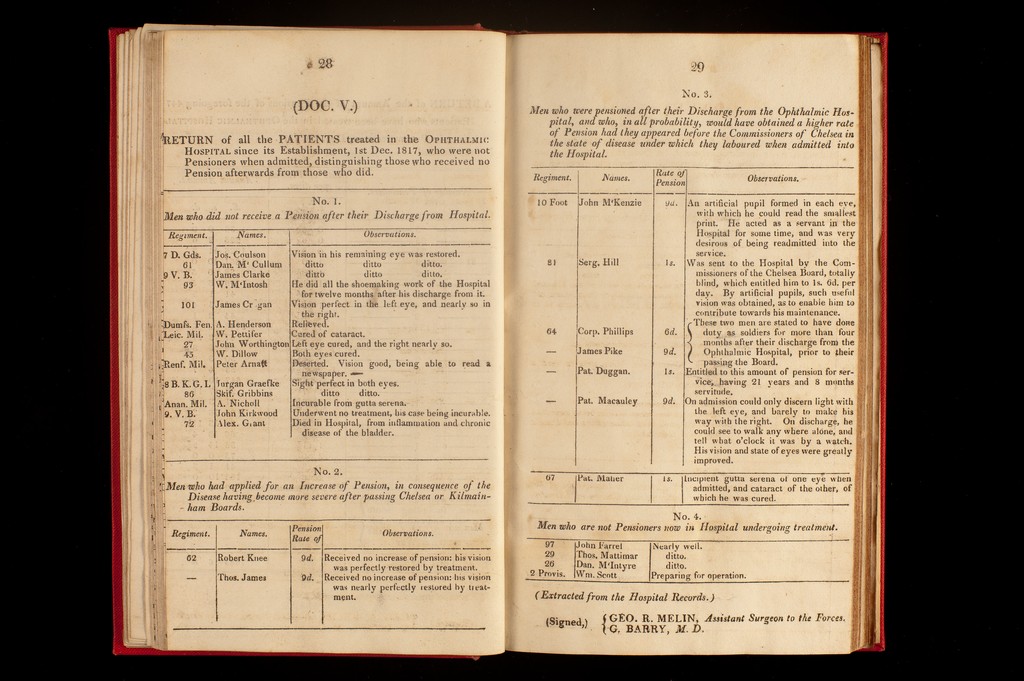 28
(DOC. V.)
RETURN of all the PATIENTS treated in the OPHTHALMIC
HOSPITAL since its Establishment, 1st Dec. 1817, who were not
Pensioners when admitted, distinguishing those who received no
Pension afterwards from those who did.
No. 1.
Men who did not receive a Pension after their Discharge from Hospital.
Regiment. Names. Observations.
7 D. Gds. Jos. Coulson Vision in his remaining eye was restored.
61 Dan. M'Cullum ditto ditto ditto.
9 V. B. James Clarke ditto ditto ditto.
93 W. M'Intosh He did all the shoemaking work of the Hospital
for twelve months after his discharge from it.
101 James Cr gan Vision perfect in the left eye, and nearly so in
the right.
Dumfs. Fen. A. Henderson Relieved.
Leic. Mil. W. Pettifer Cured of cataract.
27 John Worthington Left eye cured, and the right nearly so.
45 W. Dillow Both eyes cured.
Renf. Mil. Peter Arnatt Deserted. Vision good, being able to read a
newspaper. —
8 B. K. G. L. Jurgan Graefke Sight perfect in both eyes.
86 Skif. Gribbins ditto ditto.
Anan. Mil. A. Nicholl Incurable from gutta serena.
9. V. B. John Kirkwood Underwent no treatment, his case being incurable.
72 Alex. Grant Died in Hospital, from inflammation and chronic
disease of the bladder.
No. 2.
Men who had applied for an Increase of Pension, in consequence of the
Disease having become more severe after passing Chelsea or Kilmain-
ham Boards.
Regiment. Names. Pension Rate of Observations.
62 Robert Knee 9d. Received no increase of pension: his vision
was perfectly restored by treatment.
— Thos. James 9d. Received no increase of pension: his vision
was nearly perfectly restored by treat-
ment.
29
No. 3.
Men who were pensioned after their Discharge from the Ophthalmic Hos-
pital, and who, in all probability, would have obtained a higher rate
of Pension had they appeared before the Commissioners of Chelsea in
the state of disease under which they laboured when admitted into
the Hospital.
Regiment. Names. Rate of Pension Observations.
10 Foot John M'Kenzie 9d. An artificial pupil formed in each eye,
with which he could read the smallest
print. He acted as a servant in the
Hospital for some time, and was very
desirous of being readmitted into the
service.
81 Serg. Hill 1s. Was sent to the Hospital by the Com-
missioners of the Chelsea Board, totally
blind, which entitled him to 1s. 6d. per
day. By artificial pupils, such useful
vision was obtained, as to enable him to
contribute towards his maintenance.
These two men are stated to have done
64 Corp. Phillips 6d. duty as soldiers for more than four
months after their discharge from the
— James Pike 9d. Ophthalmic Hospital, prior to their
passing the Board.
— Pat. Duggan. 1s. Entitled to this amount of pension for ser-
vice, having 21 years and 8 months
servitude.
— Pat. Macauley 9d. On admission could only discern light with
the left eye, and barely to make his
way with the right. On discharge, he
could see to walk any where alone, and
tell what o'clock it was by a watch.
His vision and state of eyes were greatly
improved.
67 Pat. Maher 1s. Incipient gutta serena of one eye when
admitted, and cataract of the other, of
which he was cured.
No. 4.
Men who are not Pensioners now in Hospital undergoing treatment.
97 John Farrel Nearly well.
29 Thos. Mattimar ditto.
26 Dan. M'Intyre ditto.
2 Provis. Wm. Scott Preparing for operation.
(Extracted from the Hospital Records.)
(Signed,) GEO. R. MELIN, Assistant Surgeon to the Forces.
G. BARRY, M. D.